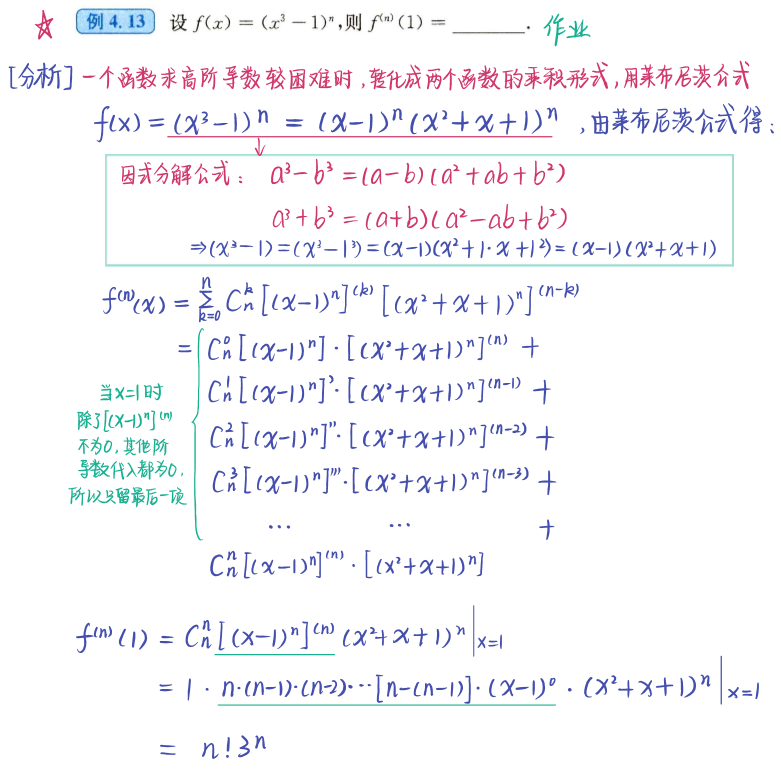 ☆ 例 4.13 设 f(x) = (x³ − 1)ⁿ,则 f⁽ⁿ⁾(1) = ______. 作业
[分析] 一个函数求高阶导数较困难时,转化成两个函数的乘积形式,用莱布尼茨公式
f(x) = (x³−1)ⁿ = (x−1)ⁿ(x²+x+1)ⁿ ,由莱布尼茨公式得:
因式分解公式: a³−b³ = (a−b)(a²+ab+b²)
a³+b³ = (a+b)(a²−ab+b²)
⇒(x³−1)=(x³−1³)=(x−1)(x²+1·x+1²)=(x−1)(x²+x+1)
f⁽ⁿ⁾(x) = \sum_{k=0}^{n} C_n^k [(x−1)ⁿ]⁽ᵏ⁾ [(x²+x+1)ⁿ]⁽ⁿ⁻ᵏ⁾
= C_n^0 [(x−1)ⁿ]·[(x²+x+1)ⁿ]⁽ⁿ⁾ +
C_n^1 [(x−1)ⁿ]'·[(x²+x+1)ⁿ]⁽ⁿ⁻¹⁾ +
C_n^2 [(x−1)ⁿ]''·[(x²+x+1)ⁿ]⁽ⁿ⁻²⁾ +
C_n^3 [(x−1)ⁿ]'''·[(x²+x+1)ⁿ]⁽ⁿ⁻³⁾ +
… … +
C_n^n [(x−1)ⁿ]⁽ⁿ⁾·[(x²+x+1)ⁿ]
当x=1时
除了[(x−1)ⁿ]⁽ⁿ⁾
不为0,其他阶
导数代入都为0.
所以只留最后一项
f⁽ⁿ⁾(1) = C_n^n [(x−1)ⁿ]⁽ⁿ⁾ (x²+x+1)ⁿ |x=1
= 1 · n·(n−1)·(n−2)···[n−(n−1)]·(x−1)⁰ · (x²+x+1)ⁿ |x=1
= n!3ⁿ